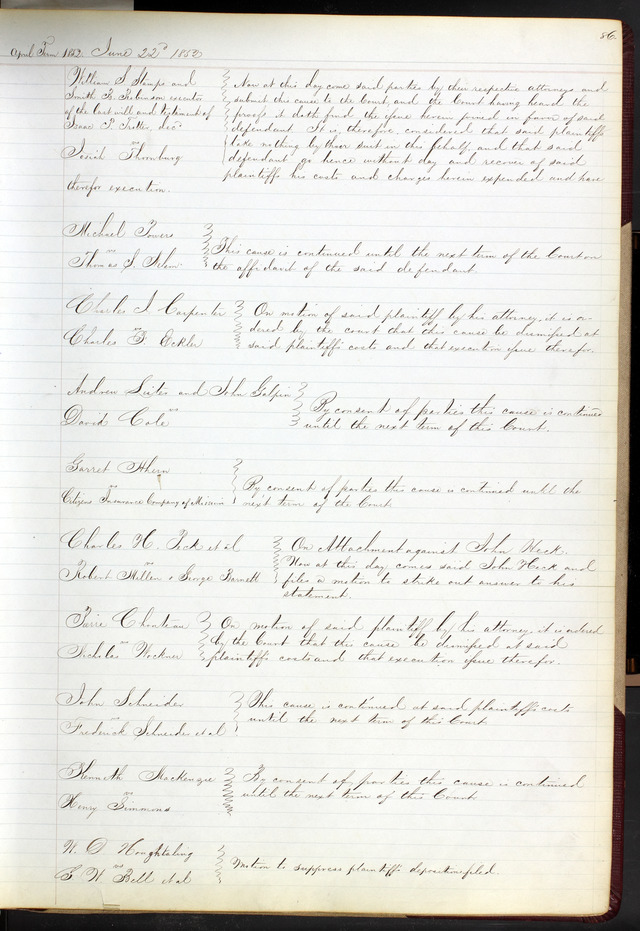 86
April Term 1852 June 22d 1852
William S. Stamps and
Smith R. Robinson executor
of the last will and testament of
Isaac P. decd
vs
Josiah Thornburg
Now at this day come said parties by their respective attorneys and
submit this cause to the Court, and the Court having heard the
proofs it doth find the issue herein joined in favor of said
defendant It is, therefore, considered that said plaintiffs
take nothing by their suit in this behalf, and that said
defendant go hence without day and recover of said
plaintiffs his costs and charges herein expended and have
therefor execution.
Michael Powers
vs
Thomas S.
This cause is continued until the next term of the Court on
the affidavit of the said defendant
Charles I Carpenter
vs
Charles F. Eckler
On motion of said plaintiff by his attorney, it is or-
dered by the court that this cause be dismissed at
said plaintiffs costs and that execution issue therefor.
Andrew and John Galpin
vs
David Cole
By consent of parties this cause is continued
until the next term of this Court.
Garret Ahern
vs
Citizens Insurance Company of Missouri
By consent of parties this cause is continued until the
next term of the Court
Charles H. Peck et al
vs
Robert Miller & George Barnett
On Attachment against John Heck.
Now at this day comes said John Heck and
files a motion to strike out answer to his
statement.
Pierre Chouteau
vs
Nicholas Wockner
On motion of said plaintiff by his attorney, it is ordered
by the Court that this cause be dismissed at said
plaintiffs costs and that execution issue therefor.
John Schneider
vs
Frederick Schneider et al
This cause is continued at said plaintiffs costs
until the next term of this Court
Kenneth Mackenzie
vs
Henry Simmons
By consent of parties this cause is continued
until the next term of this Court
W. O. Houghtaling
vs
G W Bell et al
Motion to suppress plaintiffs deposition filed.